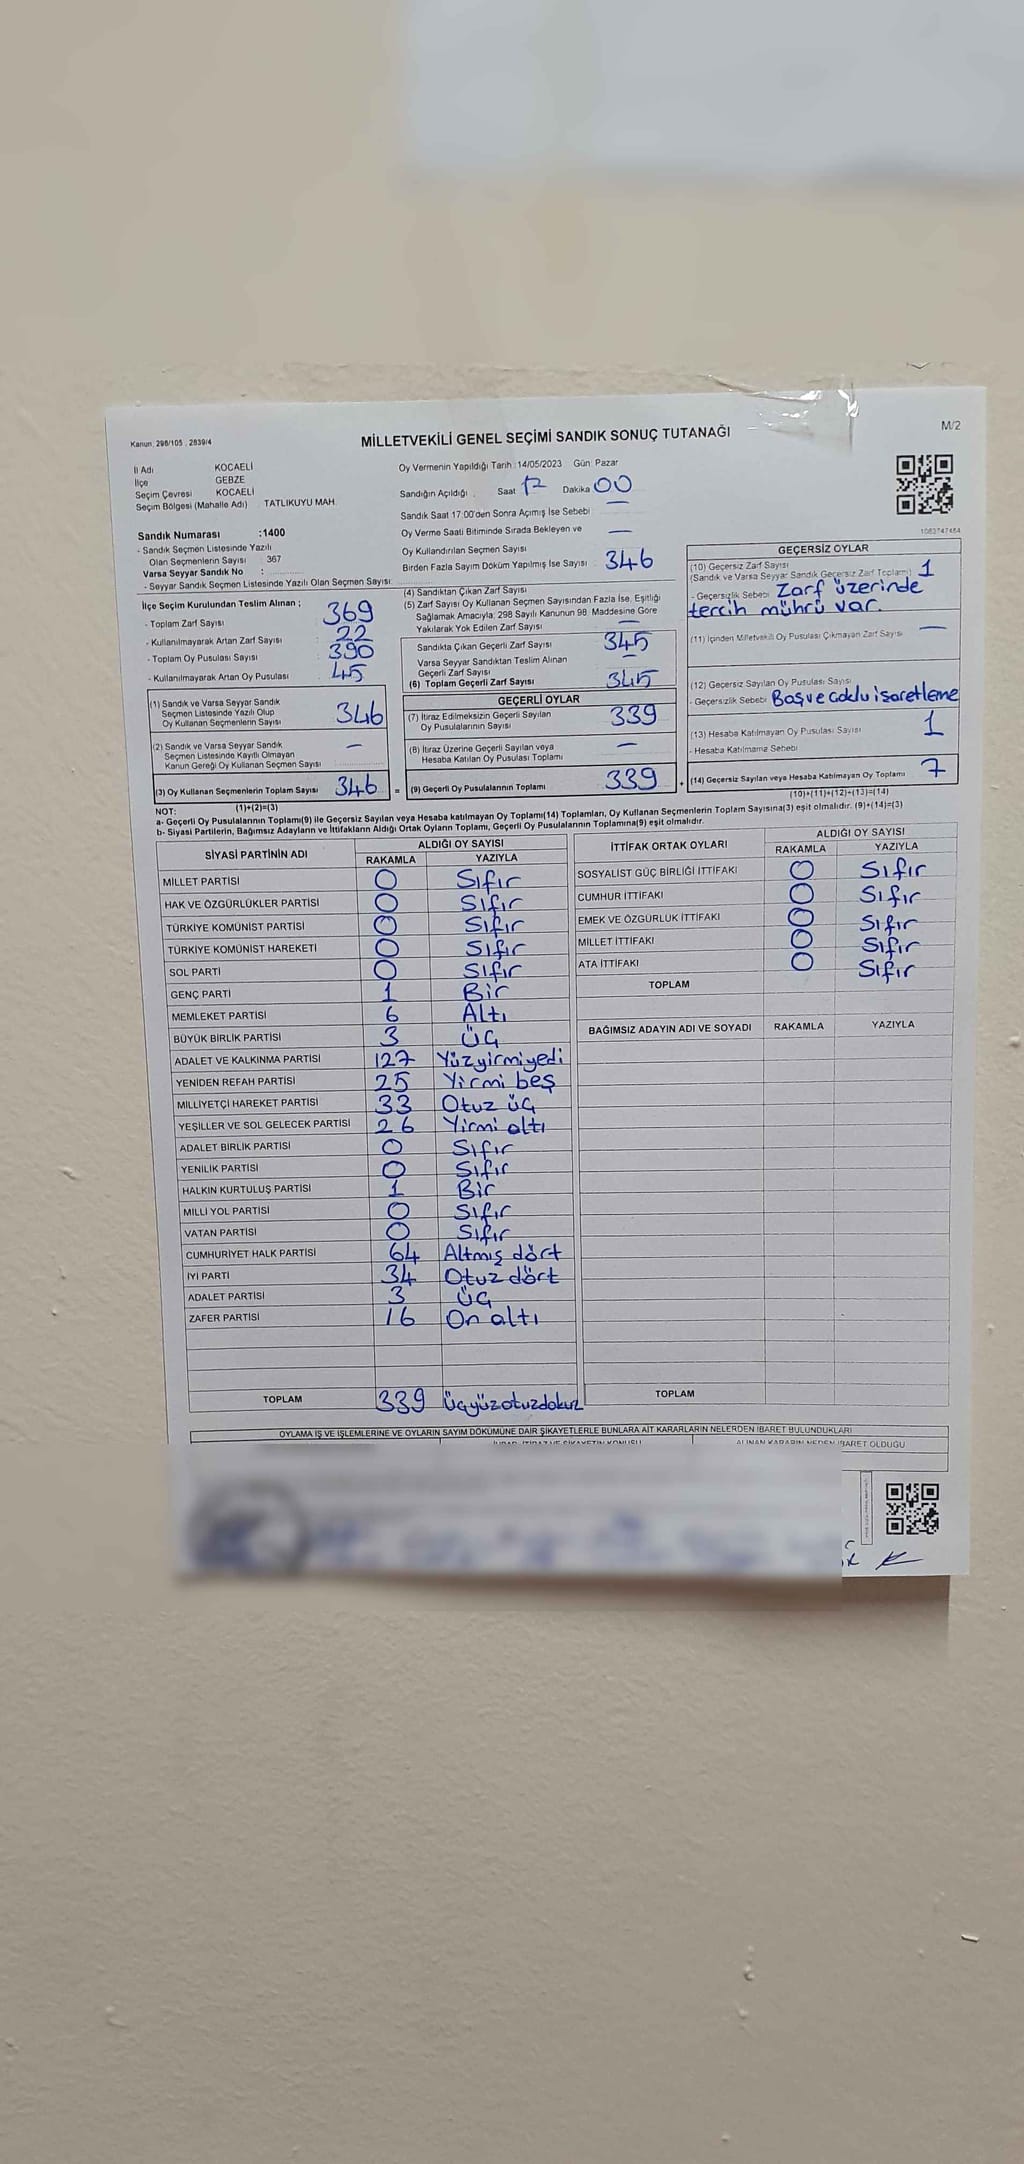 Kanun, 298/105 , 2839/4
MİLLETVEKİLİ GENEL SEÇİMİ SANDIK SONUÇ TUTANAĞI
M/2
İl Adı KOCAELİ
İlçe GEBZE
Seçim Çevresi KOCAELİ
Seçim Bölgesi (Mahalle Adı) TATLIKUYU MAH.
Oy Vermenin Yapıldığı Tarih: 14/05/2023 Gün: Pazar
Sandığın Açıldığı : Saat 17 Dakika 00
Sandık Saat 17:00'den Sonra Açımış İse Sebebi —
Oy Verme Saati Bitiminde Sırada Bekleyen ve
Oy Kullandırılan Seçmen Sayısı —
Birden Fazla Sayım Döküm Yapılmış İse Sayısı :
1083747484
Sandık Numarası :1400
- Sandık Seçmen Listesinde Yazılı
Olan Seçmenlerin Sayısı : 367
Varsa Seyyar Sandık No :
- Seyyar Sandık Seçmen Listesinde Yazılı Olan Seçmen Sayısı:
İlçe Seçim Kurulundan Teslim Alınan ;
- Toplam Zarf Sayısı : 369
- Kullanılmayarak Artan Zarf Sayısı : 22
- Toplam Oy Pusulası Sayısı : 390
- Kullanılmayarak Artan Oy Pusulası : 45
(1) Sandık ve Varsa Seyyar Sandık
Seçmen Listesinde Yazılı Olup
Oy Kullanan Seçmenlerin Sayısı 346
(2) Sandık ve Varsa Seyyar Sandık
Seçmen Listesinde Kayıtlı Olmayan
Kanun Gereği Oy Kullanan Seçmen Sayısı —
(3) Oy Kullanan Seçmenlerin Toplam Sayısı 346
(1)+(2)=(3)
(4) Sandıktan Çıkan Zarf Sayısı 346
(5) Zarf Sayısı Oy Kullanan Seçmen Sayısından Fazla İse, Eşitliği
Sağlamak Amacıyla; 298 Sayılı Kanunun 98. Maddesine Göre
Yakılarak Yok Edilen Zarf Sayısı —
Sandıkta Çıkan Geçerli Zarf Sayısı 345
Varsa Seyyar Sandıktan Teslim Alınan
Geçerli Zarf Sayısı —
(6) Toplam Geçerli Zarf Sayısı 345
GEÇERLİ OYLAR
(7) İtiraz Edilmeksizin Geçerli Sayılan
Oy Pusulalarının Sayısı 339
(8) İtiraz Üzerine Geçerli Sayılan veya
Hesaba Katılan Oy Pusulası Toplamı —
= (9) Geçerli Oy Pusulalarının Toplamı 339 +
GEÇERSİZ OYLAR
(10) Geçersiz Zarf Sayısı
(Sandık ve Varsa Seyyar Sandık Geçersiz Zarf Toplamı) 1
- Geçersizlik Sebebi Zarf üzerinde
tercih mührü var.
(11) İçinden Milletvekili Oy Pusulası Çıkmayan Zarf Sayısı —
(12) Geçersiz Sayılan Oy Pusulası Sayısı
- Geçersizlik Sebebi
(13) Hesaba Katılmayan Oy Pusulası Sayısı 1
- Hesaba Katılmama Sebebi
(14) Geçersiz Sayılan veya Hesaba Katılmayan Oy Toplamı 7
(10)+(11)+(12)+(13)=(14)
NOT:
a- Geçerli Oy Pusulalarının Toplamı(9) ile Geçersiz Sayılan ve Hesaba katılmayan Oy Toplamı(14) Toplamları, Oy Kullanan Seçmenlerin Toplam Sayısına(3) eşit olmalıdır. (9)+(14)=(3)
b- Siyasi Partilerin, Bağımsız Adayların ve İttifakların Aldığı Ortak Oyların Toplamı, Geçerli Oy Pusulalarının Toplamına(9) eşit olmalıdır.
SİYASİ PARTİNİN ADI ALDIĞI OY SAYISI
RAKAMLA YAZIYLA
MİLLET PARTİSİ 0 Sıfır
HAK VE ÖZGÜRLÜKLER PARTİSİ 0 Sıfır
TÜRKİYE KOMÜNİST PARTİSİ 0 Sıfır
TÜRKİYE KOMÜNİST HAREKETİ 0 Sıfır
SOL PARTİ 0 Sıfır
GENÇ PARTİ 1 Bir
MEMLEKET PARTİSİ 6 Altı
BÜYÜK BİRLİK PARTİSİ 3 üç
ADALET VE KALKINMA PARTİSİ 127 Yüzyirmiyedi
YENİDEN REFAH PARTİSİ 25 Yirmi beş
MİLLİYETÇİ HAREKET PARTİSİ 33 Otuz üç
YEŞİLLER VE SOL GELECEK PARTİSİ 26 Yirmi altı
ADALET BİRLİK PARTİSİ 0 Sıfır
YENİLİK PARTİSİ 0 Sıfır
HALKIN KURTULUŞ PARTİSİ 1 Bir
MİLLİ YOL PARTİSİ 0 Sıfır
VATAN PARTİSİ 0 Sıfır
CUMHURİYET HALK PARTİSİ 64 Altmış dört
İYİ PARTİ 34 Otuz dört
ADALET PARTİSİ 3 üç
ZAFER PARTİSİ 16 On altı
TOPLAM 339 üçyüzotuzdokuz
İTTİFAK ORTAK OYLARI ALDIĞI OY SAYISI
RAKAMLA YAZIYLA
SOSYALİST GÜÇ BİRLİĞİ İTTİFAKI 0 Sıfır
CUMHUR İTTİFAKI 0 Sıfır
EMEK VE ÖZGÜRLÜK İTTİFAKI 0 Sıfır
MİLLET İTTİFAKI 0 Sıfır
ATA İTTİFAKI 0 Sıfır
TOPLAM
BAĞIMSIZ ADAYIN ADI VE SOYADI RAKAMLA YAZIYLA
TOPLAM
OYLAMA İŞ VE İŞLEMLERİNE VE OYLARIN SAYIM DÖKÜMÜNE DAİR ŞİKAYETLERLE BUNLARA AİT KARARLARIN NELERDEN İBARET BULUNDUKLARI
ALINAN KARARIN NEDEN İBARET OLDUĞU